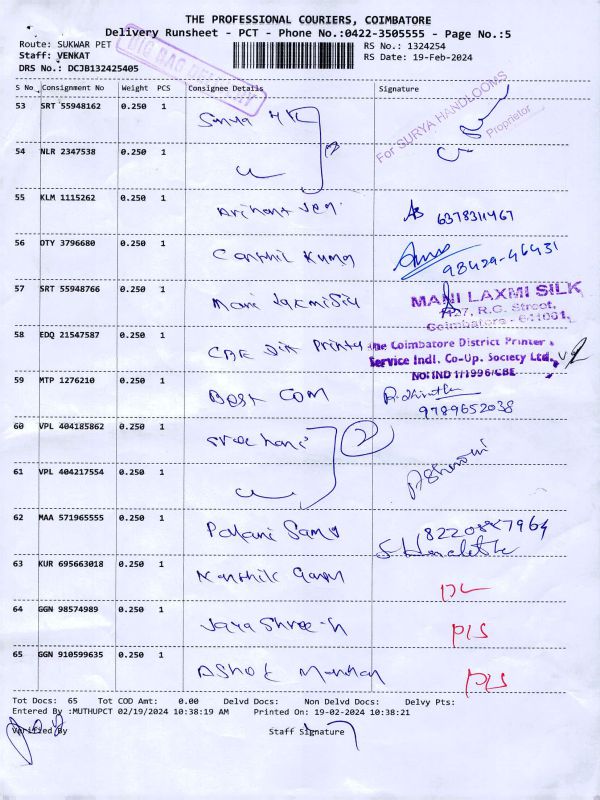 THE PROFESSIONAL COURIERS, COIMBATORE
Delivery Runsheet - PCT - Phone No.:0422-3505555 - Page No.:5
Route: SUKWAR PET RS No.: 1324254
Staff: VENKAT RS Date: 19-Feb-2024
DRS No.: DCJB132425405
S No Consignment No Weight PCS Consignee Details Signature
53 SRT 55948162 0.250 1 Surya
For SURYA HANDLOOMS
Proprietor
54 NLR 2347538 0.250 1
55 KLM 1115262 0.250 1 Arihant 6378311467
56 DTY 3796680 0.250 1 Senthil Kumar 98429-46431
57 SRT 55948766 0.250 1 Mani Laxmi Silk
MANI LAXMI SILK
R.G. Street,
Coimbatore - 641001.
58 EDQ 21547587 0.250 1 CBE Dist Printer
The Coimbatore District Printer
Service Indl. Co-Op. Society Ltd.
No: IND 1/1996/CBE
59 MTP 1276210 0.250 1 Best Com
9789652038
60 VPL 404185862 0.250 1 Sree Hani 2
61 VPL 404217554 0.250 1
62 MAA 571965555 0.250 1 Palani Samy
63 KUR 695663018 0.250 1 DL
64 GGN 98574989 0.250 1 Jaya Shree PIS
65 GGN 910599635 0.250 1 Ashok PIS
Tot Docs: 65 Tot COD Amt: 0.00 Delvd Docs: Non Delvd Docs: Delvy Pts:
Entered By :MUTHUPCT 02/19/2024 10:38:19 AM Printed On: 19-02-2024 10:38:21
Verified By Staff Signature